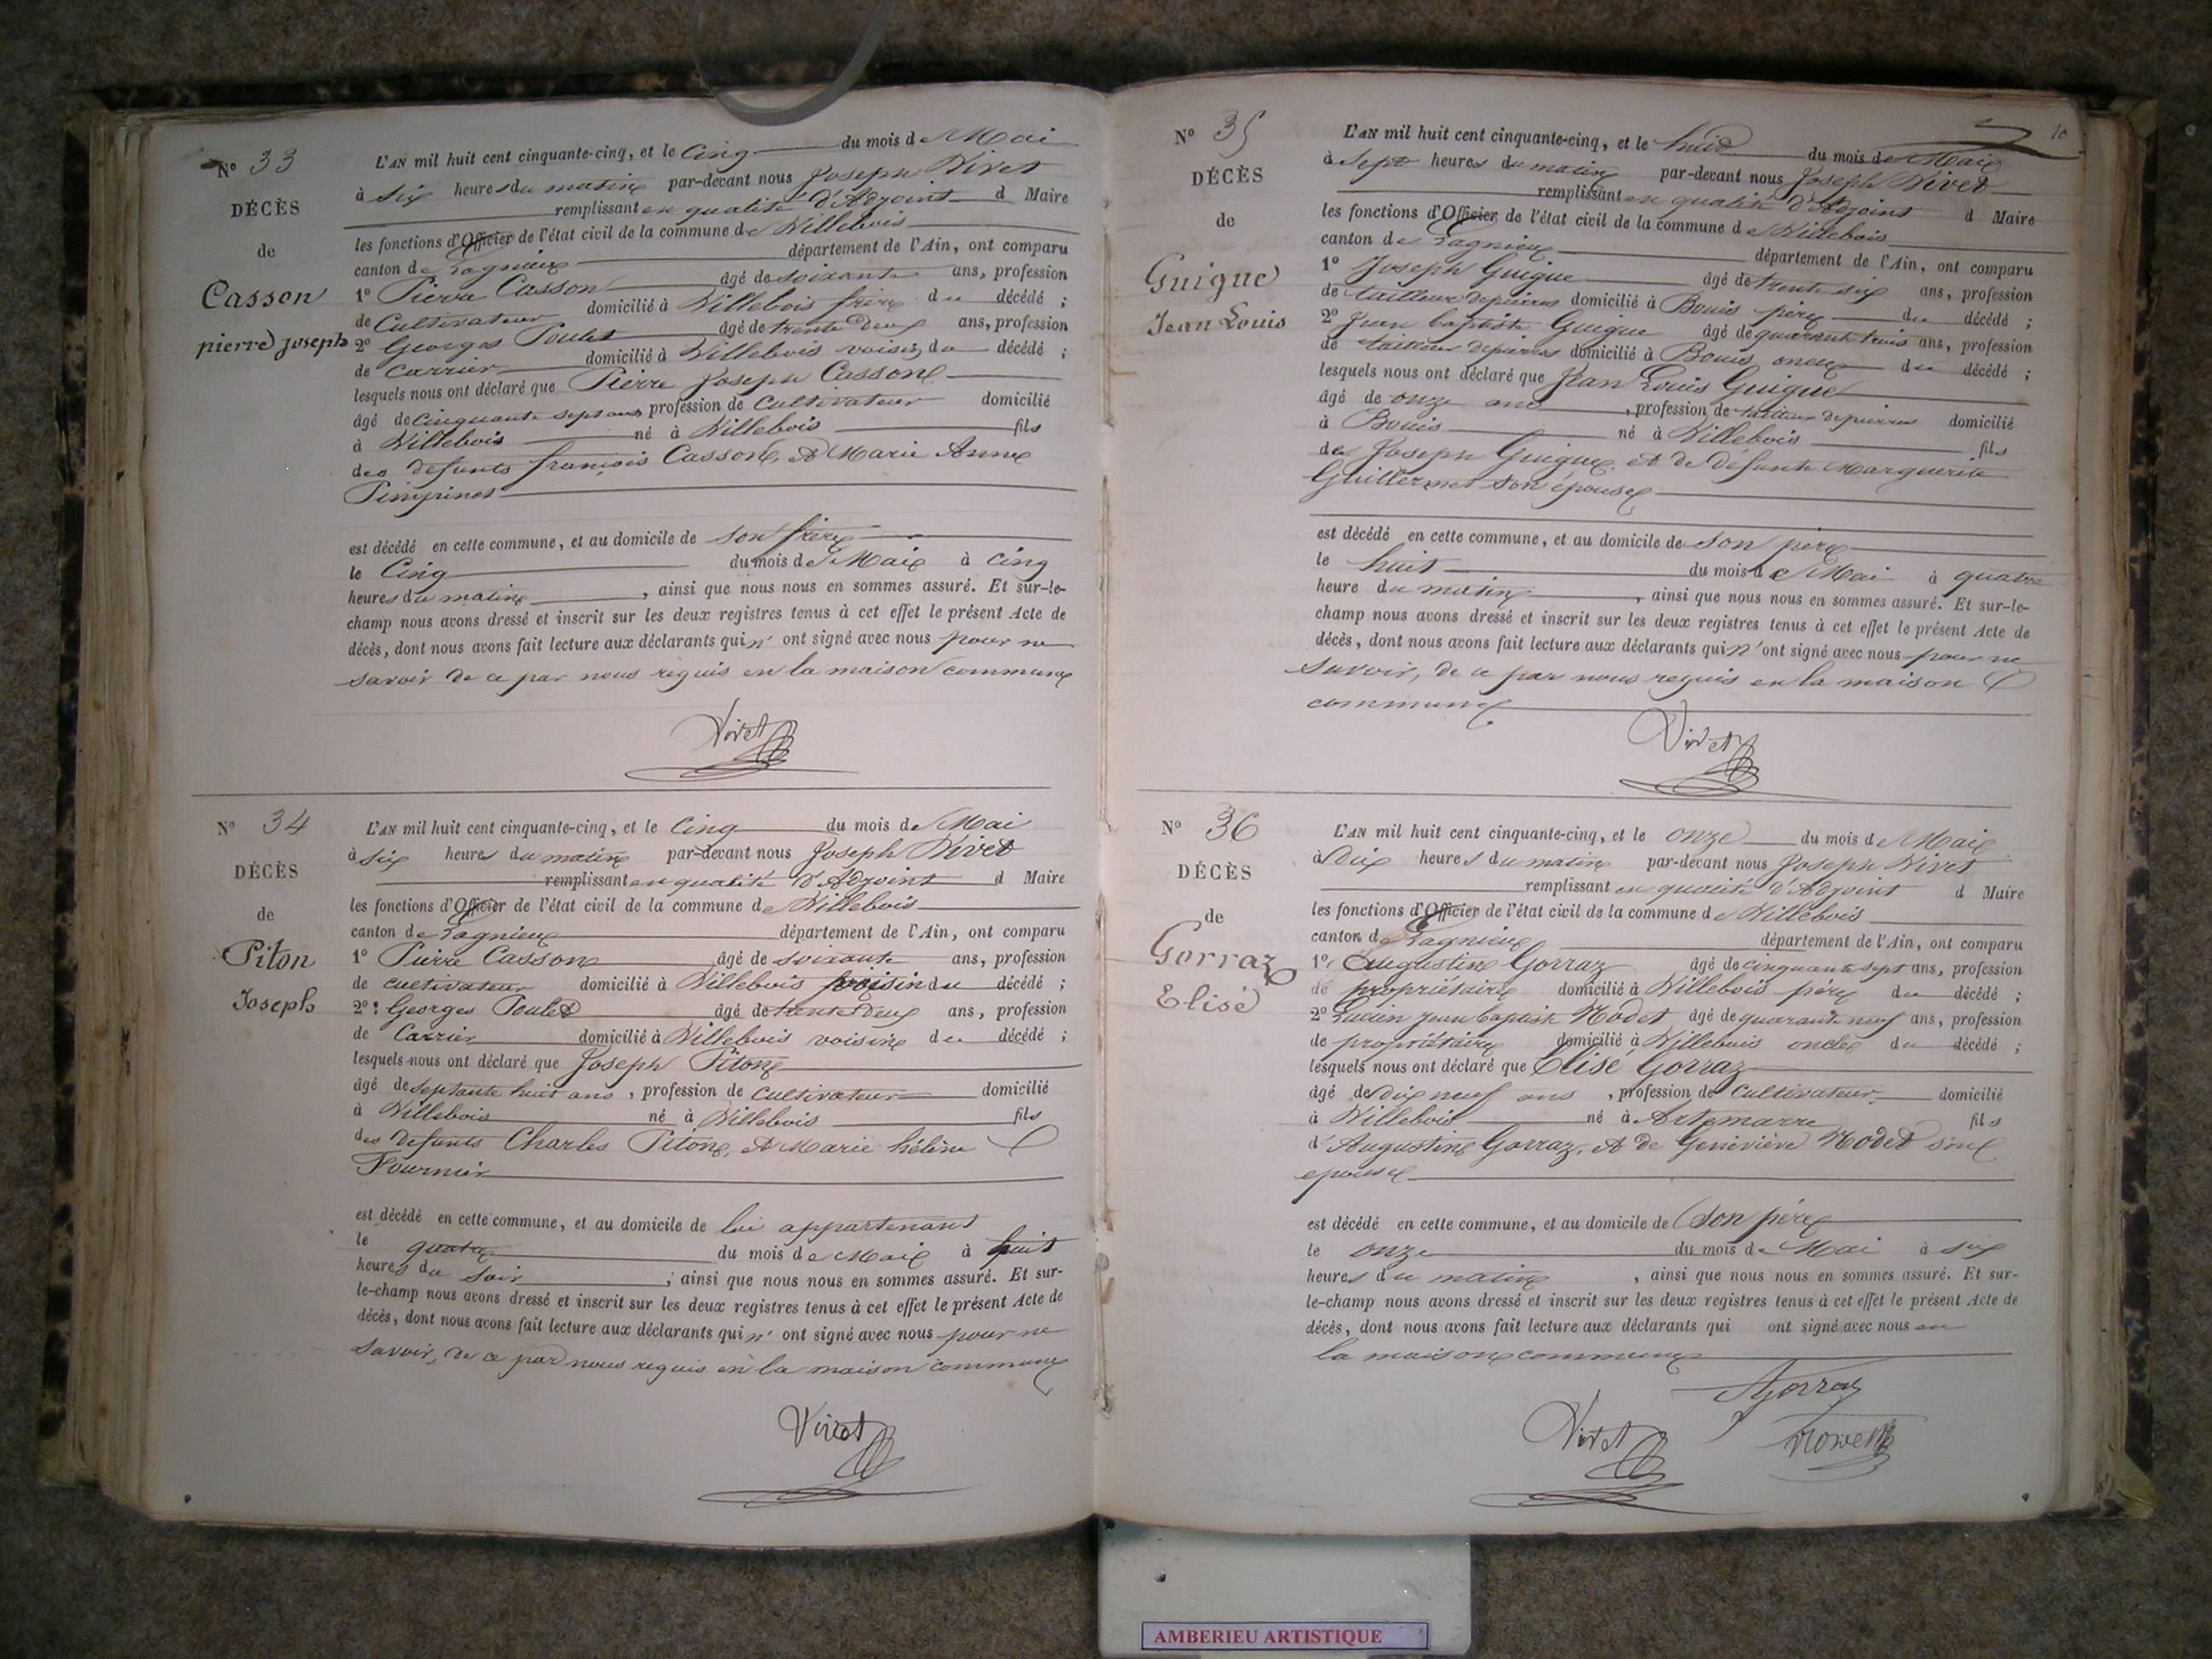 N° 33
DÉCÈS
de
Casson
pierre joseph
L'AN mil huit cent cinquante-cinq, et le Cinq du mois de Mai
à Six heures du matin par-devant nous Joseph Vivet
remplissant en qualité d'Adjoint d Maire
les fonctions d'Officier de l'état civil de la commune de Villebois
canton de Lagnieu département de l'Ain, ont comparu
1° Pierre Casson âgé de soixante ans, profession
de Cultivateur domicilié à Villebois frère du décédé ;
2° Georges Poulet âgé de trente deux ans, profession
de Carrier domicilié à Villebois voisin du décédé ;
lesquels nous ont déclaré que Pierre Joseph Casson
âgé de cinquante sept ans profession de Cultivateur domicilié
à Villebois né à Villebois fils
des défunts françois Casson, et Marie Anne
est décédé en cette commune, et au domicile de son frère
le Cinq du mois de Mai à cinq
heures du matin , ainsi que nous nous en sommes assuré. Et sur-le-
champ nous avons dressé et inscrit sur les deux registres tenus à cet effet le présent Acte de
décès, dont nous avons fait lecture aux déclarants qui n' ont signé avec nous pour ne
savoir de ce par nous requis en la maison commune
Vivet
N° 34
DÉCÈS
de
Piton
Joseph
L'AN mil huit cent cinquante-cinq, et le Cinq du mois de Mai
à six heures du matin par-devant nous Joseph Vivet
remplissant en qualité d'Adjoint d Maire
les fonctions d'Officier de l'état civil de la commune de Villebois
canton de Lagnieu département de l'Ain, ont comparu
1° Pierre Casson âgé de soixante ans, profession
de cultivateur domicilié à Villebois voisin du décédé ;
2° : Georges Poulet âgé de trente deux ans, profession
de Carrier domicilié à Villebois voisin du décédé ;
lesquels nous ont déclaré que Joseph Piton
âgé de septante huit ans , profession de Cultivateur domicilié
à Villebois né à Villebois fils
des défunts Charles Piton, et Marie hélène
Fournier
est décédé en cette commune, et au domicile de lui appartenant
le quatre du mois de Mai à huit
heures du soir ; ainsi que nous nous en sommes assuré. Et sur-
le-champ nous avons dressé et inscrit sur les deux registres tenus à cet effet le présent Acte de
décès, dont nous avons fait lecture aux déclarants qui n' ont signé avec nous pour ne
savoir, de ce par nous requis en la maison commune
Vivet
10
N° 35
DÉCÈS
de
Guigue
Jean Louis
L'AN mil huit cent cinquante-cinq, et le huit du mois de Mai
à sept heures du matin par-devant nous Joseph Vivet
remplissant en qualité d'Adjoint d Maire
les fonctions d'Officier de l'état civil de la commune de Villebois
canton de Lagnieu département de l'Ain, ont comparu
1° Joseph Guigue âgé de trente six ans, profession
de tailleur de pierres domicilié à Bouis père du décédé ;
2° Jean baptiste Guigue âgé de quarante trois ans, profession
de tailleur de pierres domicilié à Bouis oncle du décédé ;
lesquels nous ont déclaré que Jean Louis Guigue
âgé de onze ans , profession de tailleur de pierres domicilié
à Bouis né à Villebois fils
de Joseph Guigue et de défunte Marguerite
Guillermet son épouse
est décédé en cette commune, et au domicile de son père
le huit du mois de Mai à quatre
heure du matin , ainsi que nous nous en sommes assuré. Et sur-le-
champ nous avons dressé et inscrit sur les deux registres tenus à cet effet le présent Acte de
décès, dont nous avons fait lecture aux déclarants qui n' ont signé avec nous pour ne
savoir, de ce par nous requis en la maison
commune
Vivet
N° 36
DÉCÈS
de
Gorraz
Elisé
L'AN mil huit cent cinquante-cinq, et le onze du mois de Mai
à dix heures du matin par-devant nous Joseph Vivet
remplissant en qualité d'Adjoint d Maire
les fonctions d'Officier de l'état civil de la commune de Villebois
canton de Lagnieu département de l'Ain, ont comparu
1° Augustin Gorraz âgé de cinquante sept ans, profession
de propriétaire domicilié à Villebois père du décédé ;
2° Lucien Jean baptiste Nodet âgé de quarante neuf ans, profession
de propriétaire domicilié à Villebois oncle du décédé ;
lesquels nous ont déclaré que Elisé Gorraz
âgé de dix neuf ans , profession de Cultivateur domicilié
à Villebois né à Artemarre fils
d'Augustin Gorraz, et de Geneviève Nodet sine
epouse
est décédé en cette commune, et au domicile de son père
le onze du mois de Mai à six
heures du matin , ainsi que nous nous en sommes assuré. Et sur-
le-champ nous avons dressé et inscrit sur les deux registres tenus à cet effet le présent Acte de
décès, dont nous avons fait lecture aux déclarants qui ont signé avec nous en
la maison commune
AGorraz
Vivet
AMBERIEU ARTISTIQUE